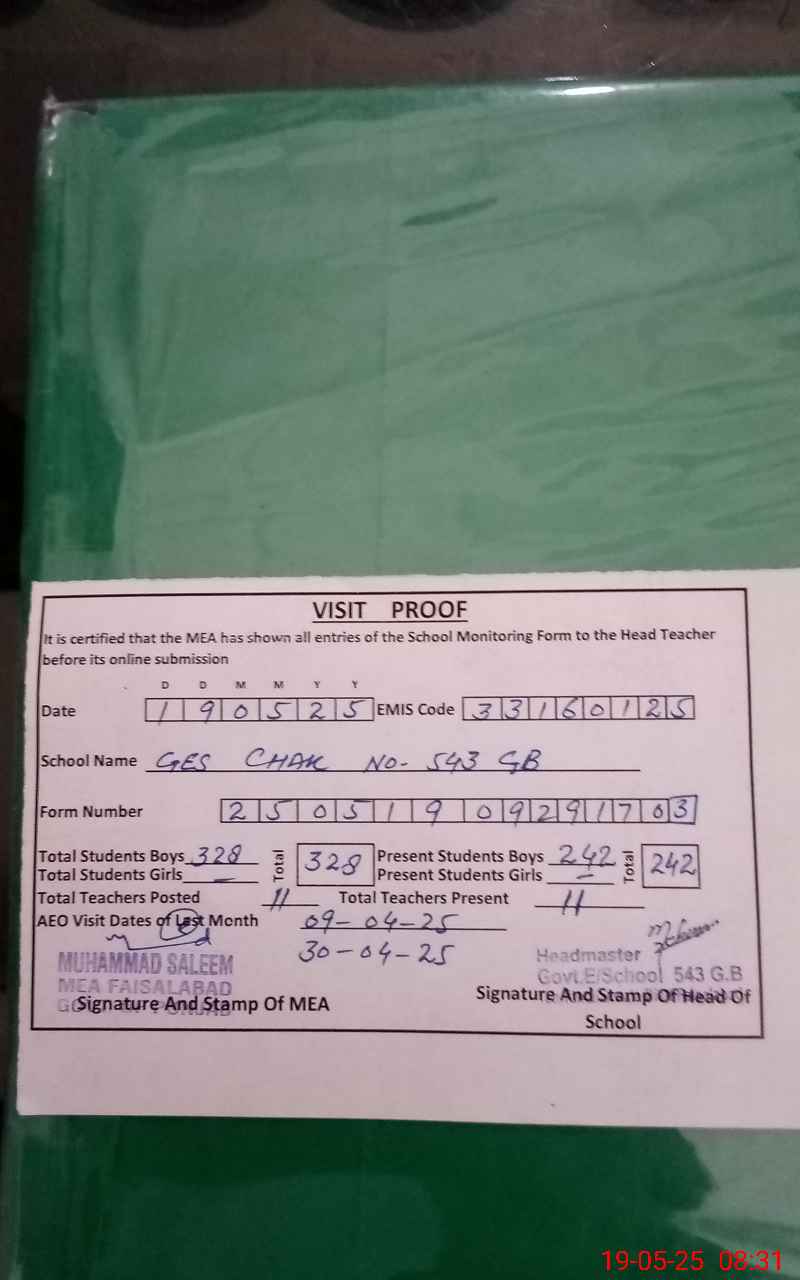 VISIT PROOF
It is certified that the MEA has shown all entries of the School Monitoring Form to the Head Teacher
before its online submission
D D M M Y Y
Date 190525 EMIS Code 33160125
School Name GES CHAK NO- 543 GB
Form Number 25051909291703
Total Students Boys 328 Total 328 Present Students Boys 242 Total 242
Total Students Girls — Present Students Girls —
Total Teachers Posted 11 Total Teachers Present 11
AEO Visit Dates of Last Month 09-04-25
30-04-25
MUHAMMAD SALEEM
MEA FAISALABAD
Headmaster
Govt.E/School 543 G.B
Signature And Stamp Of MEA
Signature And Stamp Of Head Of
School
19-05-25 08:31